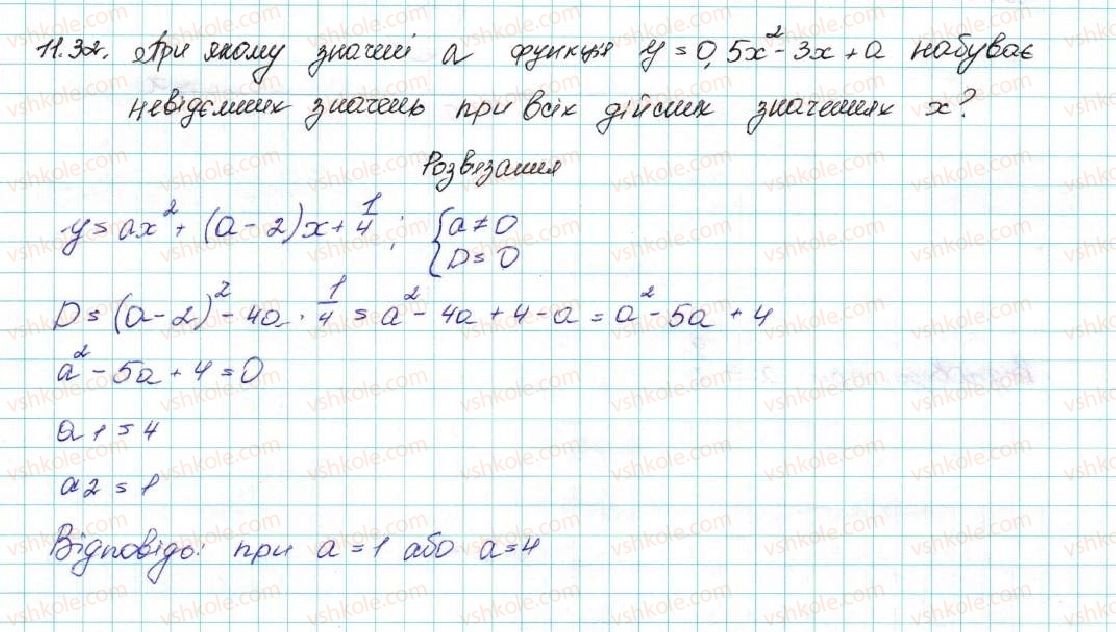 11.32. При якому значні а функція y = 0,5x² - 3x + a набуває
невідємних значень при всіх дійсних значеннях x?
Розвязання
y = ax² + (a - 2)x + 1/4 ; { a ≠ 0
D = 0
D = (a - 2)² - 4a · 1/4 = a² - 4a + 4 - a = a² - 5a + 4
a² - 5a + 4 = 0
a1 = 4
a2 = 1
Відповідь: при a = 1 або a = 4
vshkole.com